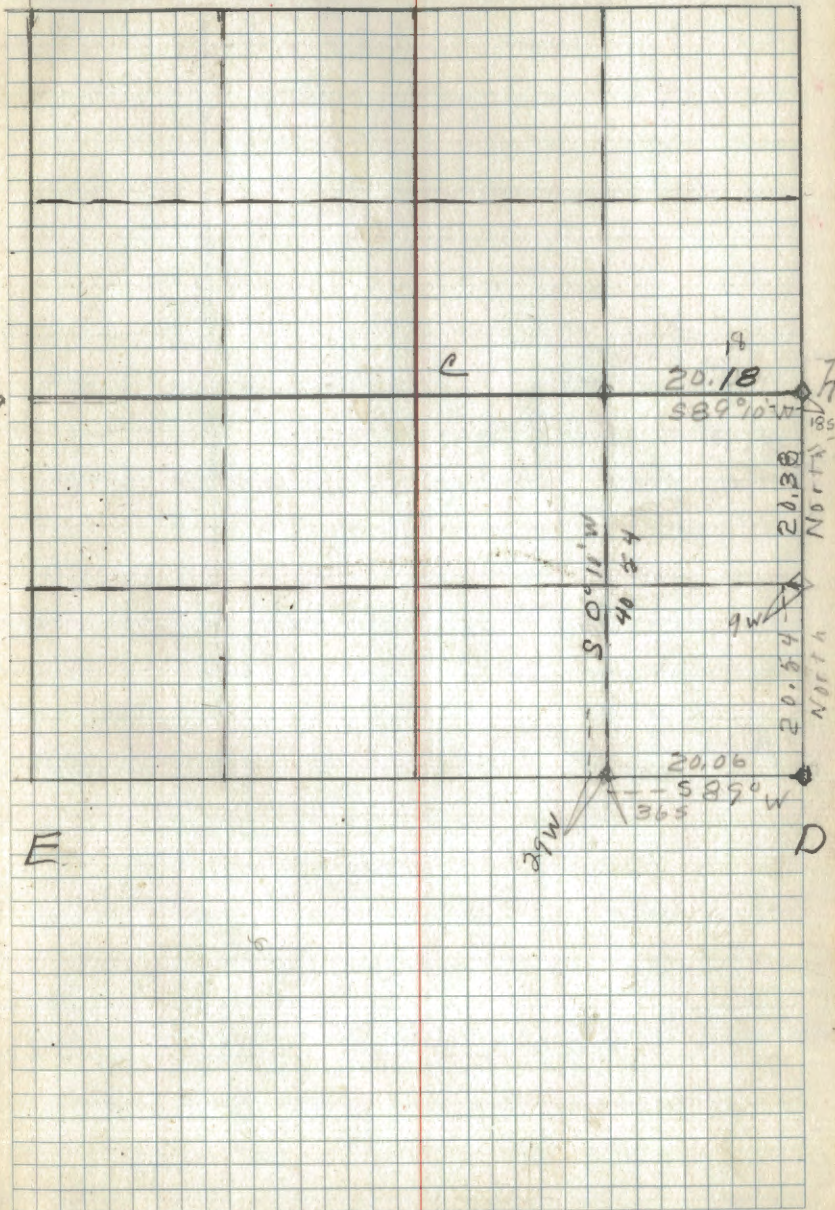 18
C
20.18
S89°10'W
18S
20.38
North
S 0°11'W
40 54
9W
20.54
North
20.06
S 89° W
36S
29W
E
D